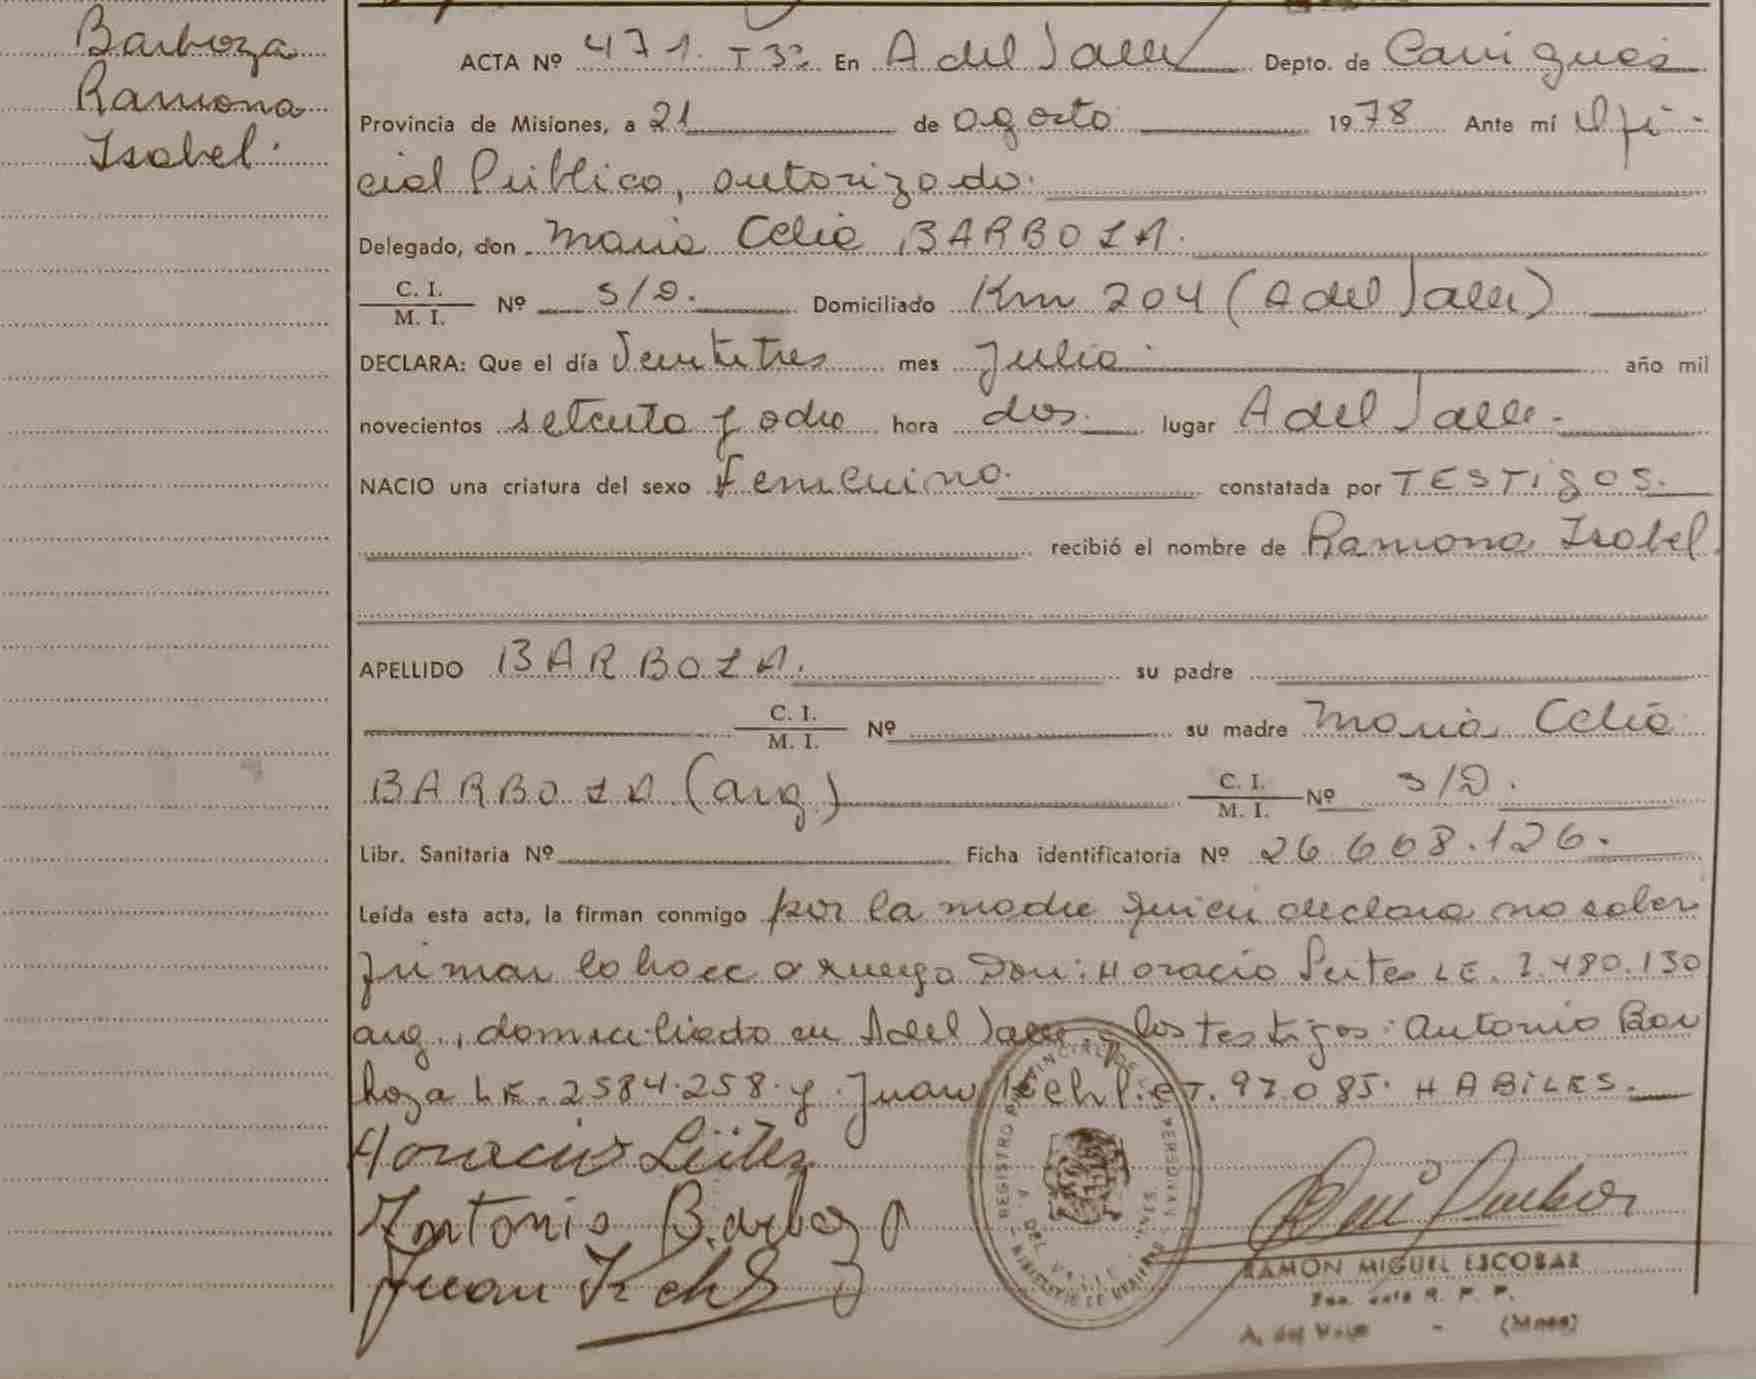 Barboza
Ramona
Isabel.
ACTA Nº 471. T3º En A del Valle Depto. de Cainguás
Provincia de Misiones, a 21 de agosto 1978 Ante mí Ofi-
cial Público, autorizado.
Delegado, don Maria Celia BARBOZA.
C. I.
M. I. Nº S/D. Domiciliado Km 204 (A del Valle)
DECLARA: Que el día Veintitres mes Julio año mil
novecientos setenta y ocho hora dos. lugar A del Valle.
NACIO una criatura del sexo Femenino. constatada por TESTIGOS.
recibió el nombre de Ramona Isabel.
APELLIDO BARBOZA. su padre
C. I.
M. I. Nº su madre Maria Celia
BARBOZA (arg.) C. I.
M. I. Nº S/D.
Libr. Sanitaria Nº Ficha identificatoria Nº 26.608.126.
Leída esta acta, la firman conmigo por la madre quien declara no saber
firmar lo hace a ruego Don: Horacio LE. 7.480.130
arg., domiciliado en A del Valle y los testigos: Antonio Bar
boza LE. 2584.258 y Juan 97.085. HABILES.
Horacio
Antonio Barboza
Juan
REGISTRO PROVINCIAL DE LAS PERSONAS
A. DEL VALLE
RAMON MIGUEL ESCOBAR
R. P. P.
A. del Valle - (Mnes)